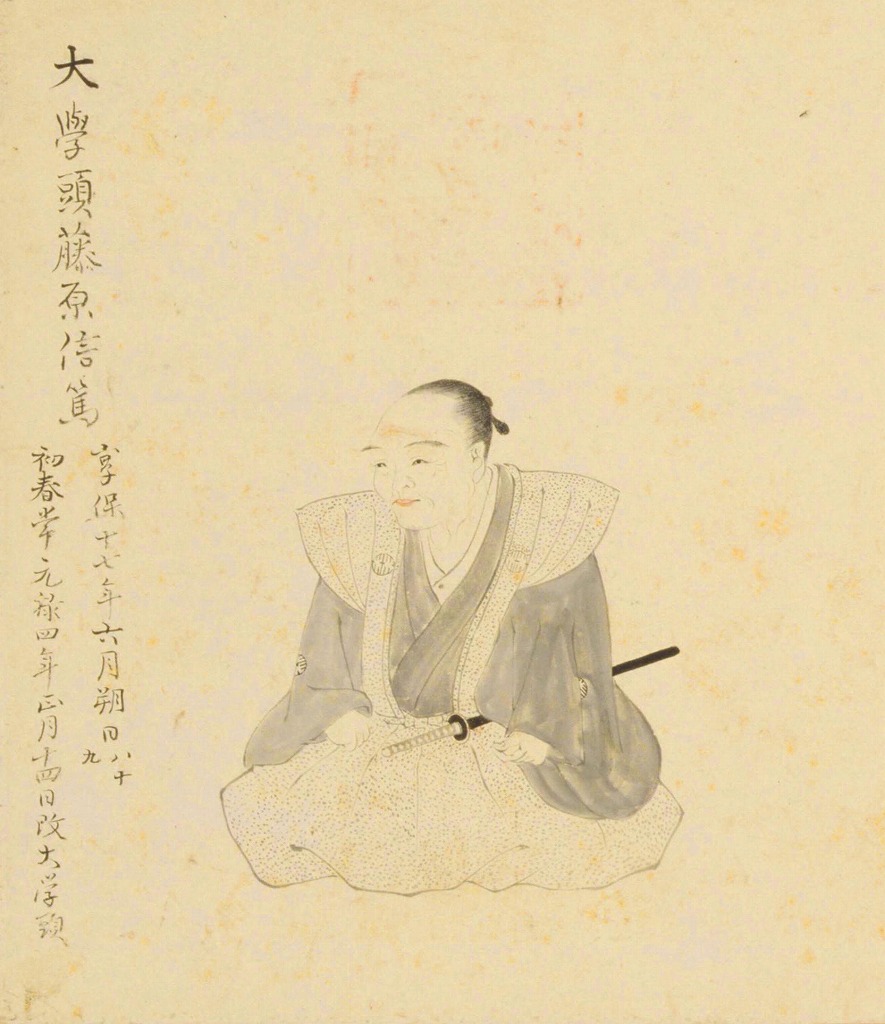 大學頭藤原信篤
享保十七年六月朔日八十九
初春常元禄四年正月十四日改大学頭